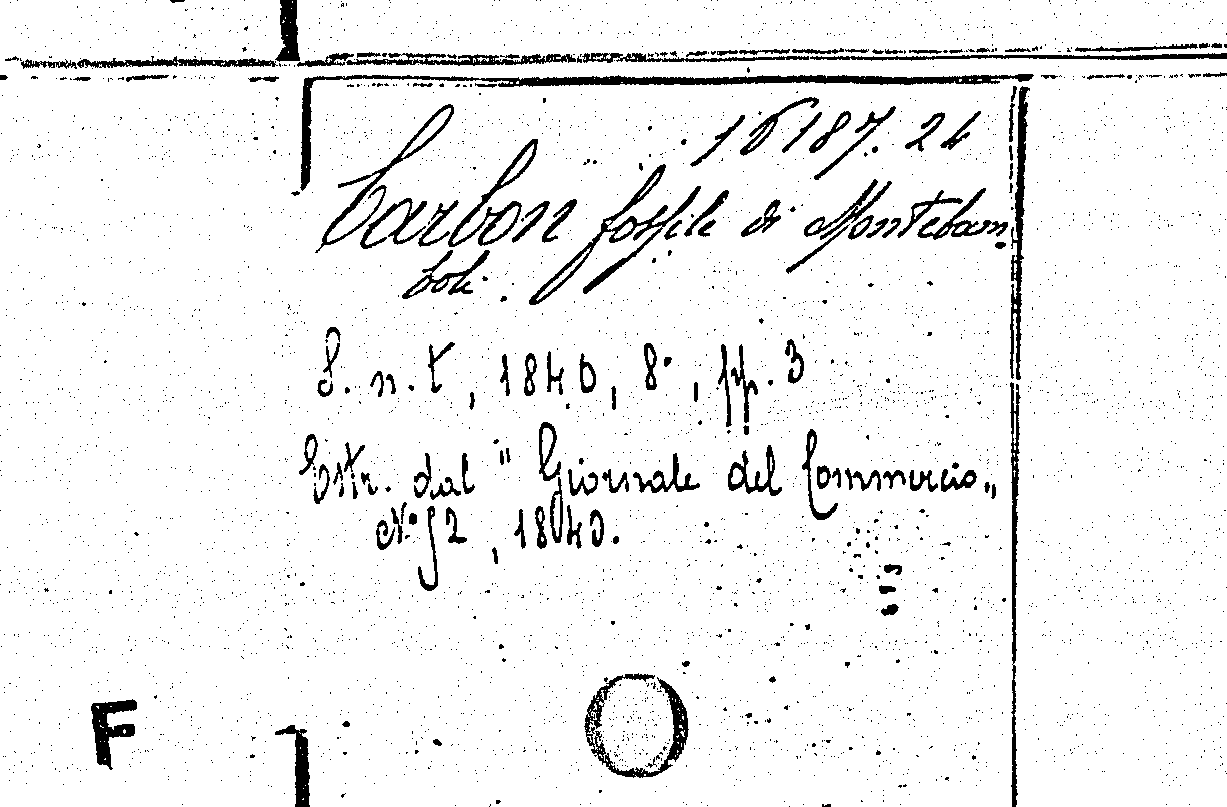 10187. 24
Carbon fossile di Montebam
boli.
S. n. t, 1840, 8°, pp. 3
Estr. dal "Giornale del Commercio„
N.° 52, 1840.
F